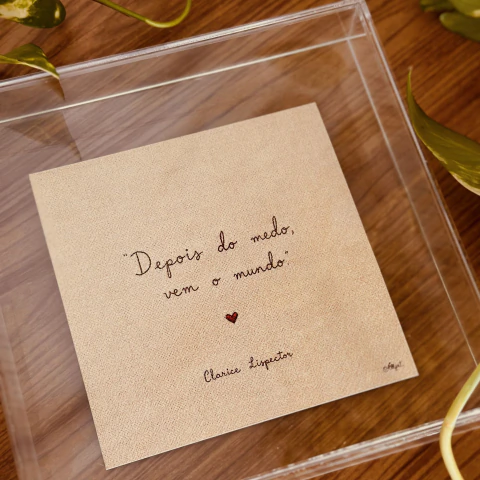 "Depois do medo,
vem o mundo".
Clarice Lispector